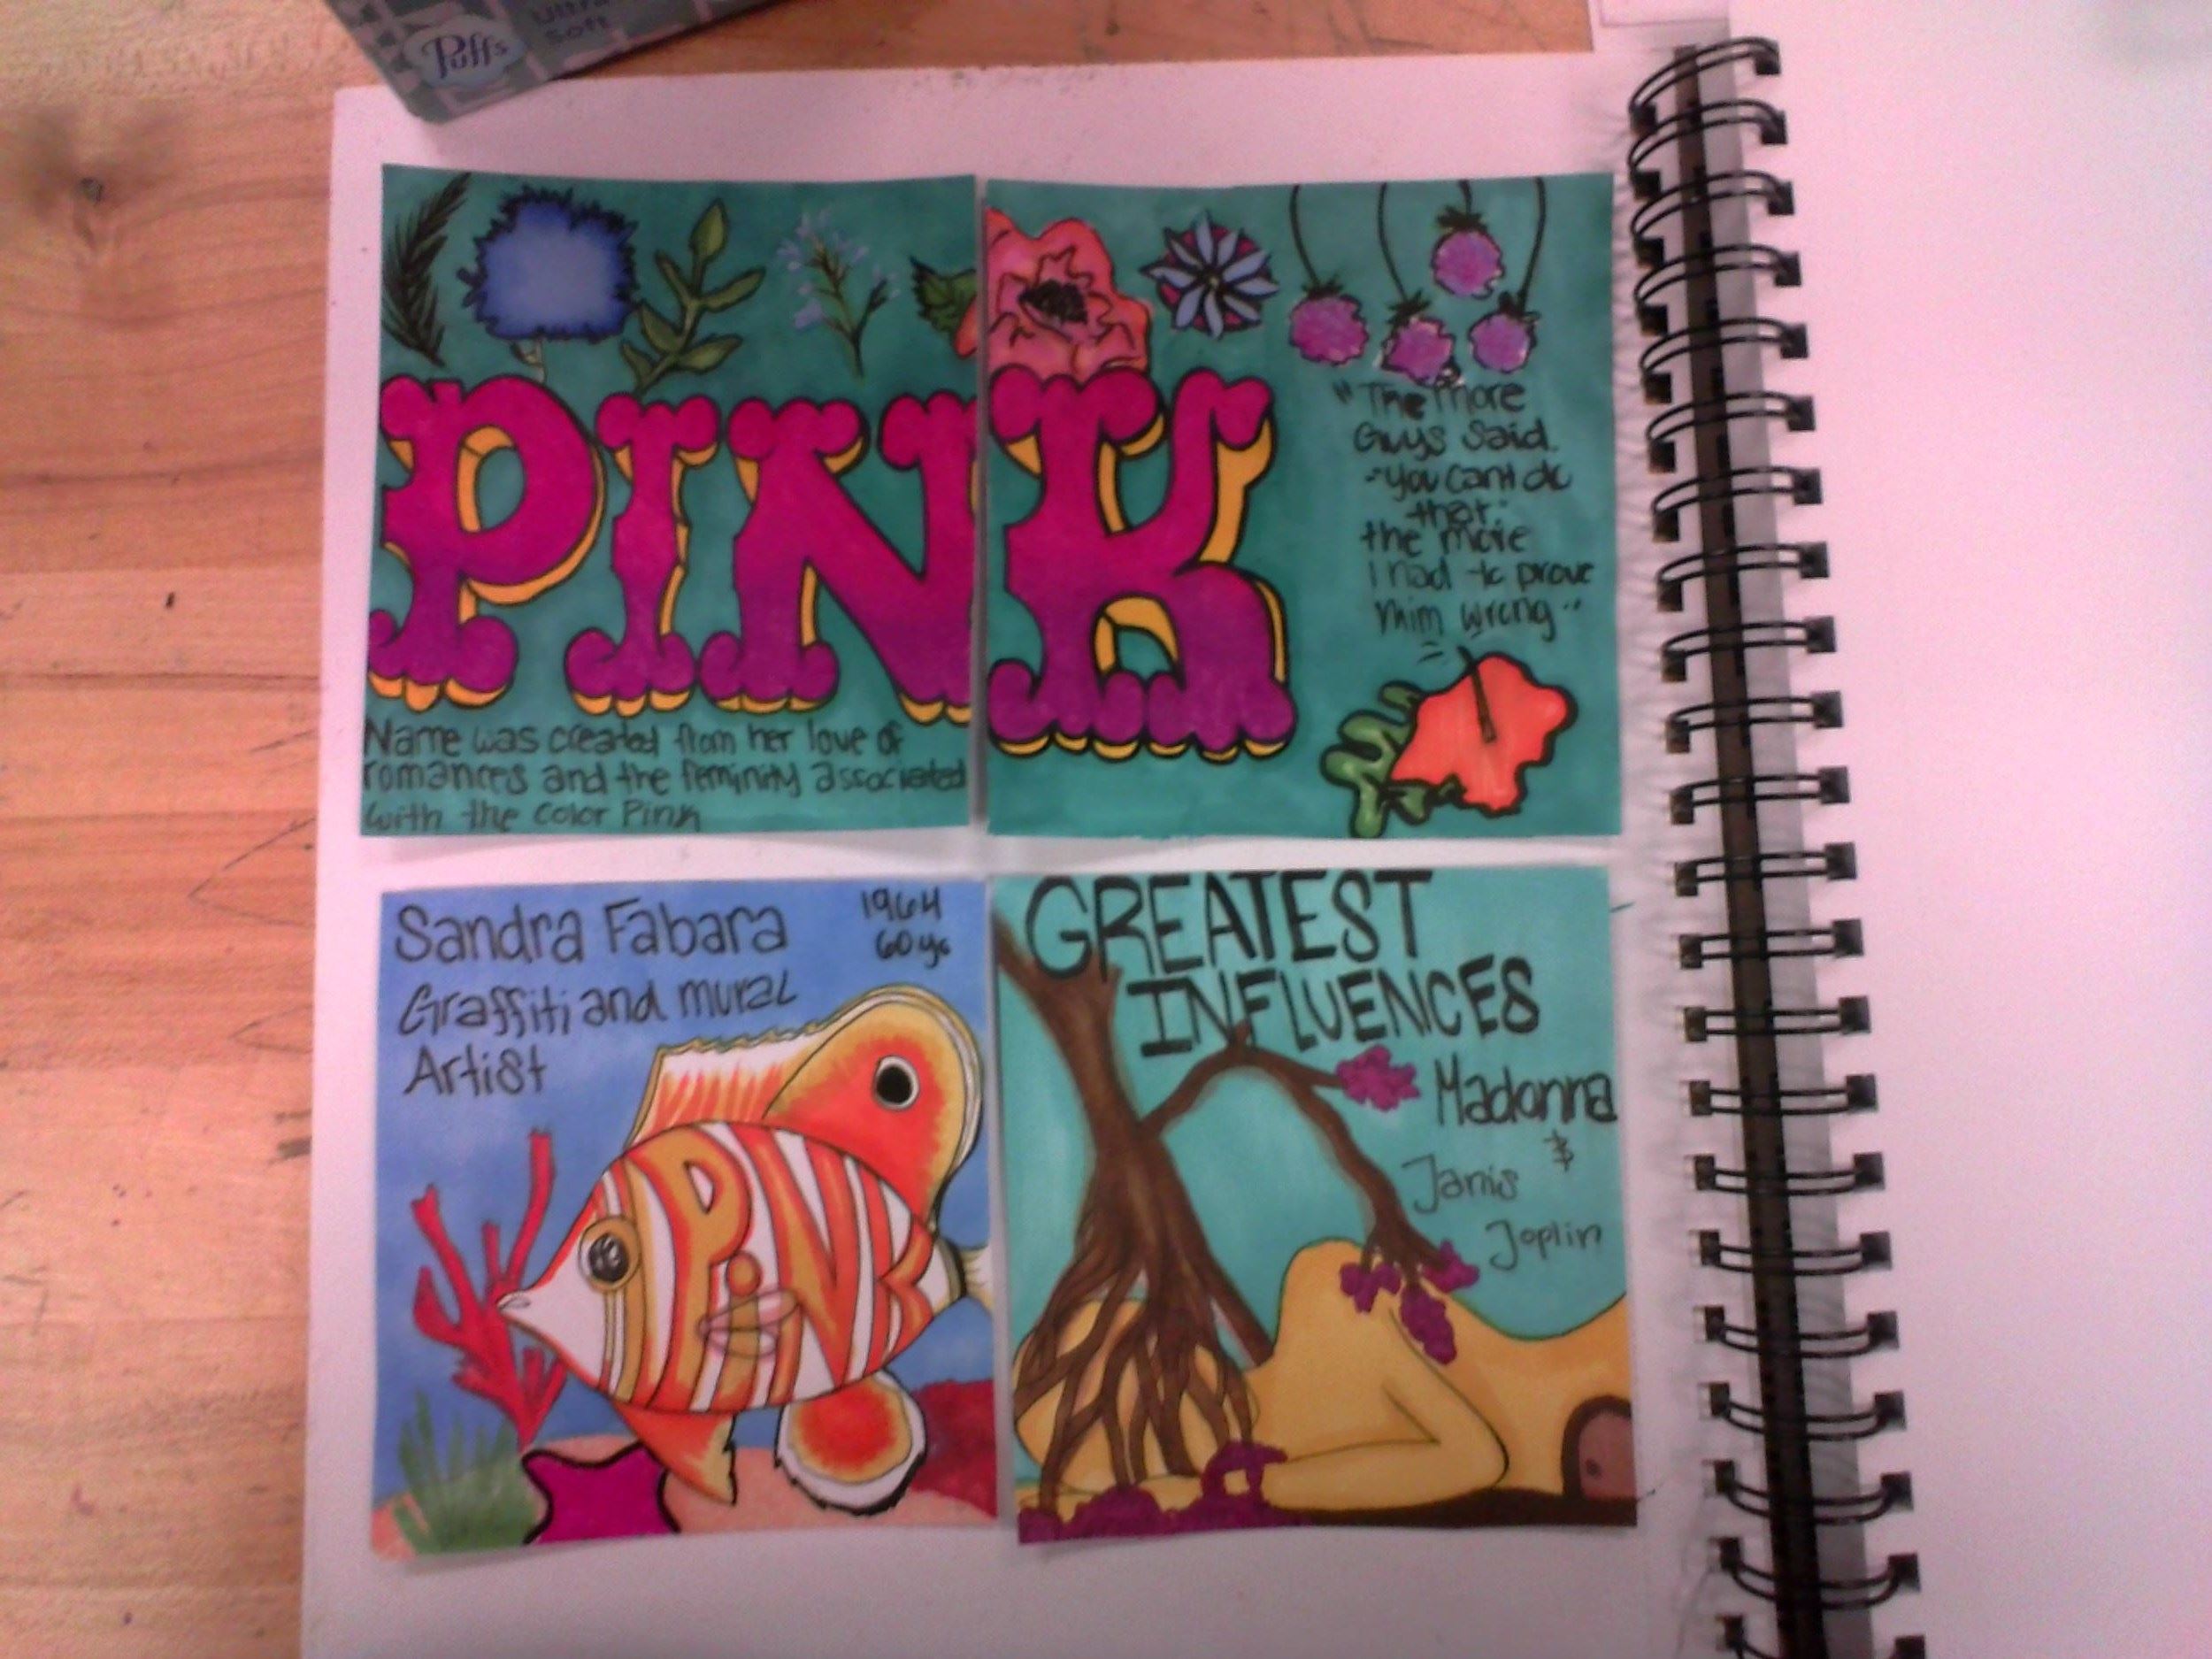 Puffs
Ultra
Soft
PINK
"The more
Guys said.
"you cant do
that."
the more
I had to prove
him wrong"
Name was created from her love of
romances and the feminity associated
with the color Pink
Sandra Fabara
1964
60 yo
Graffiti and mural
Artist
PiNK
GREATEST
INFLUENCES
Madonna
&
Janis
Joplin